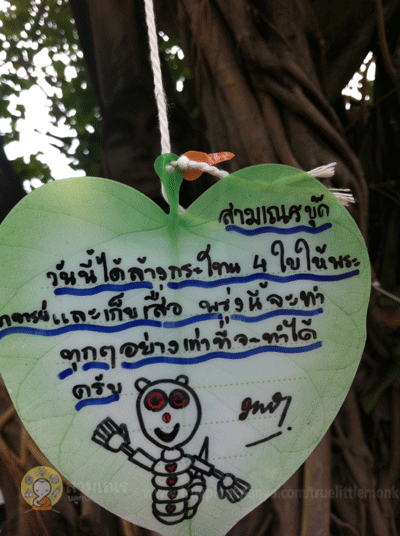 สามเณรบุ๊ค
วันนี้ได้ล้างกระโถน 4 ใบให้พระ
อาจารย์และเก็บเสื่อ พรุ่งนี้จะทำ
ทุกๆอย่างเท่าที่จะทำได้
ครับ
สามเณร
.com/truelittlemonk